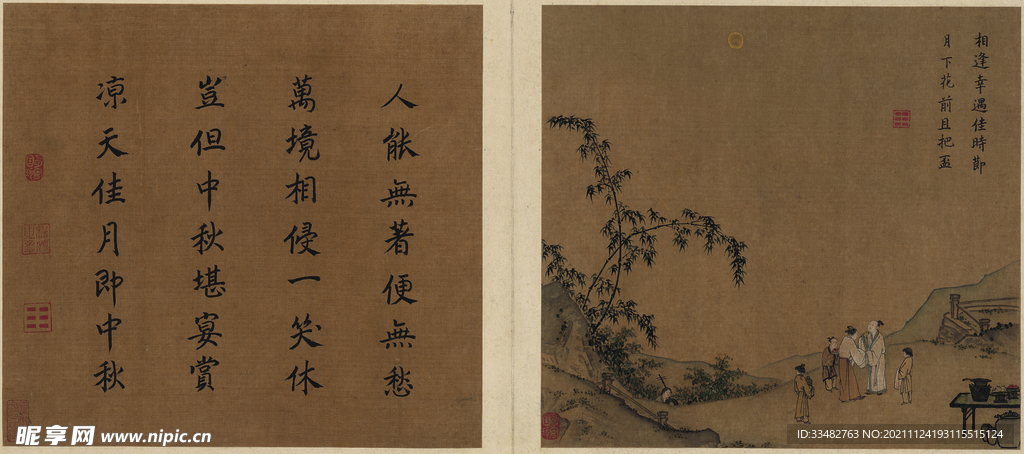 相逢幸遇佳時節
月下花前且把盃
人能無著便無愁
萬境相侵一笑休
豈但中秋堪宴賞
涼天佳月即中秋
昵享网 www.nipic.cn
ID:33482763 NO:20211124193115515124